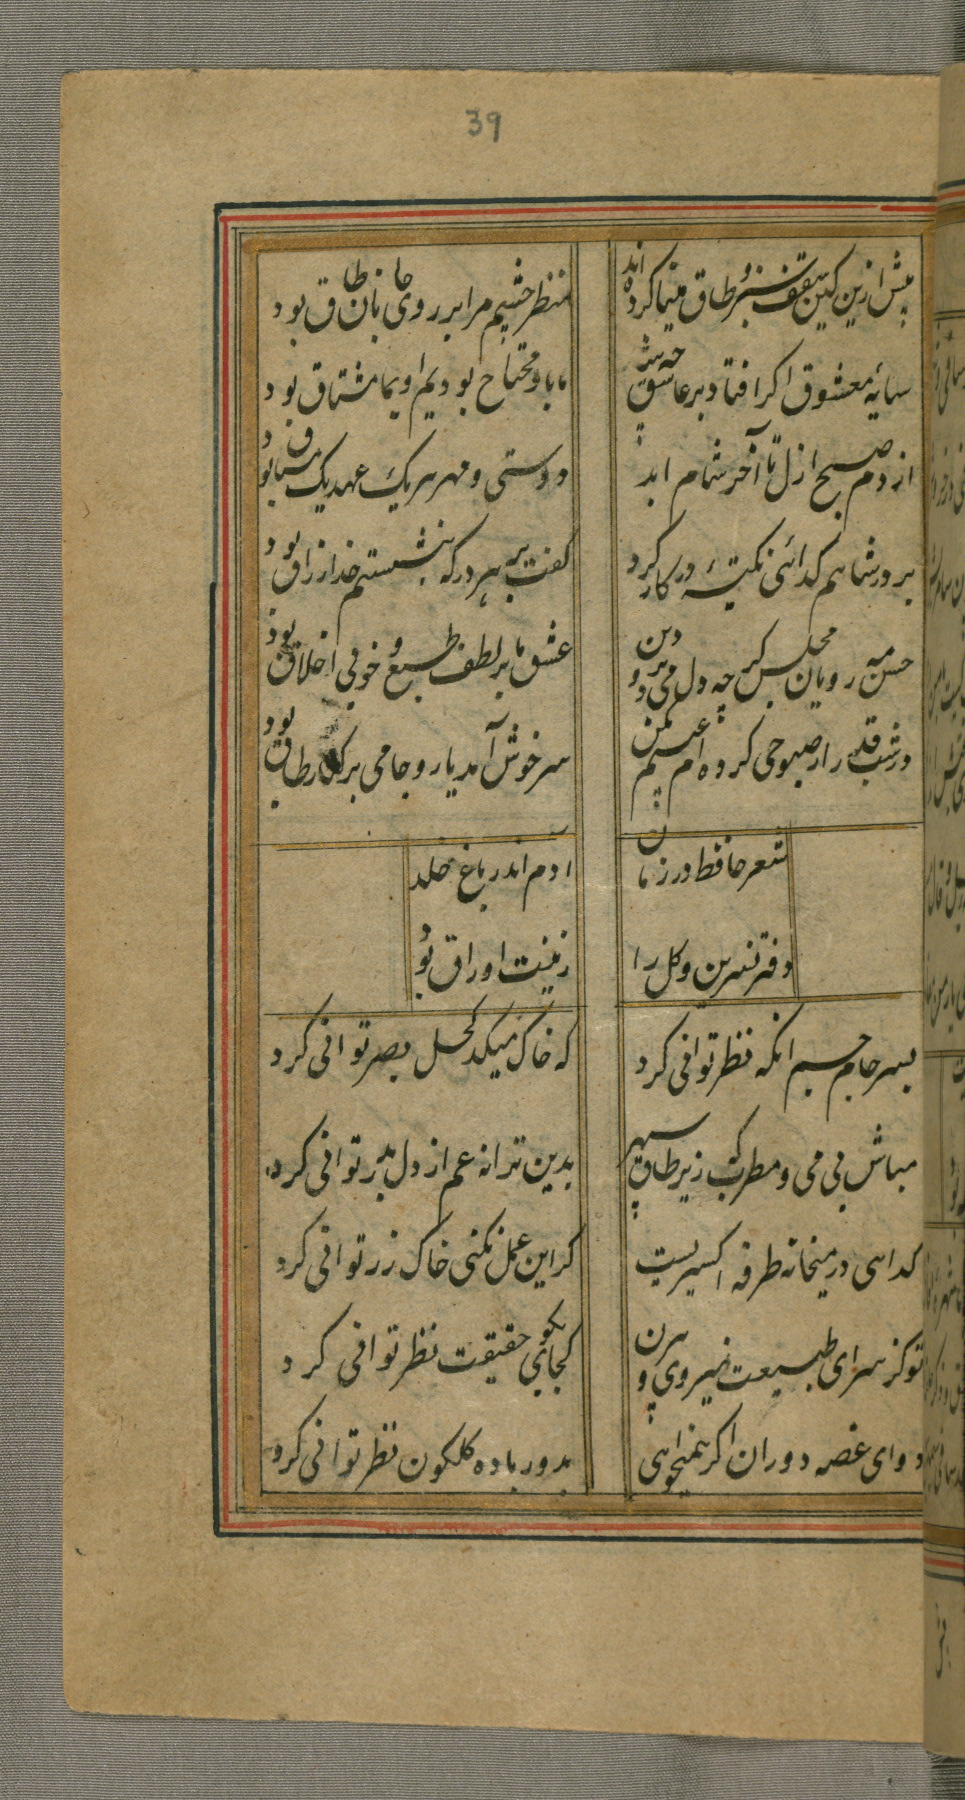 39
پیش ازین کین سقف سبز و طاق مینا کرده اند
منظر چشیم مرا ابروی جانان طاق بود
سایه معشوق اگر افتاد بر عاشق چه شد
ما باو محتاج بودیم او بما مشتاق بود
از دم صبح ازل تا آخر شام ابد
دوستی و مهر بر یک عهد یک میثاق بود
بر در شاهم گدائی نکتهٔ در کار کرد
گفت بر هر در که بنشستم خدا رزاق بود
حسن مه رویان مجلس گر چه دل می برد و دین
عشق ما بر لطف طبع و خوبی اخلاق بود
در شب قدر ار صبوحی کرده ام عیبم مکن
سر خوش آمد یار و جامی بر کنار طاق بود
شعر حافظ در زمان
آدم اندر باغ خلد
دفتر نسرین و گل را
زینت اوراق بود
بسر جام جم انگه نظر توانی کرد
که خاک میکده کحل بصر توانی کرد
مباش بی می و مطرب که زیر طاق سپهر
بدین ترانه غم از دل بدر توانی کرد
گدایی در میخانه طرفه اکسیریست
گر این عمل بکنی خاک زر توانی کرد
تو کز سرای طبیعت نمیروی بیرون
کجا بکوی حقیقت نظر توانی کرد
دوای غصه دوران اگر همیخواهی
بدور باده گلگون نظر توانی کرد